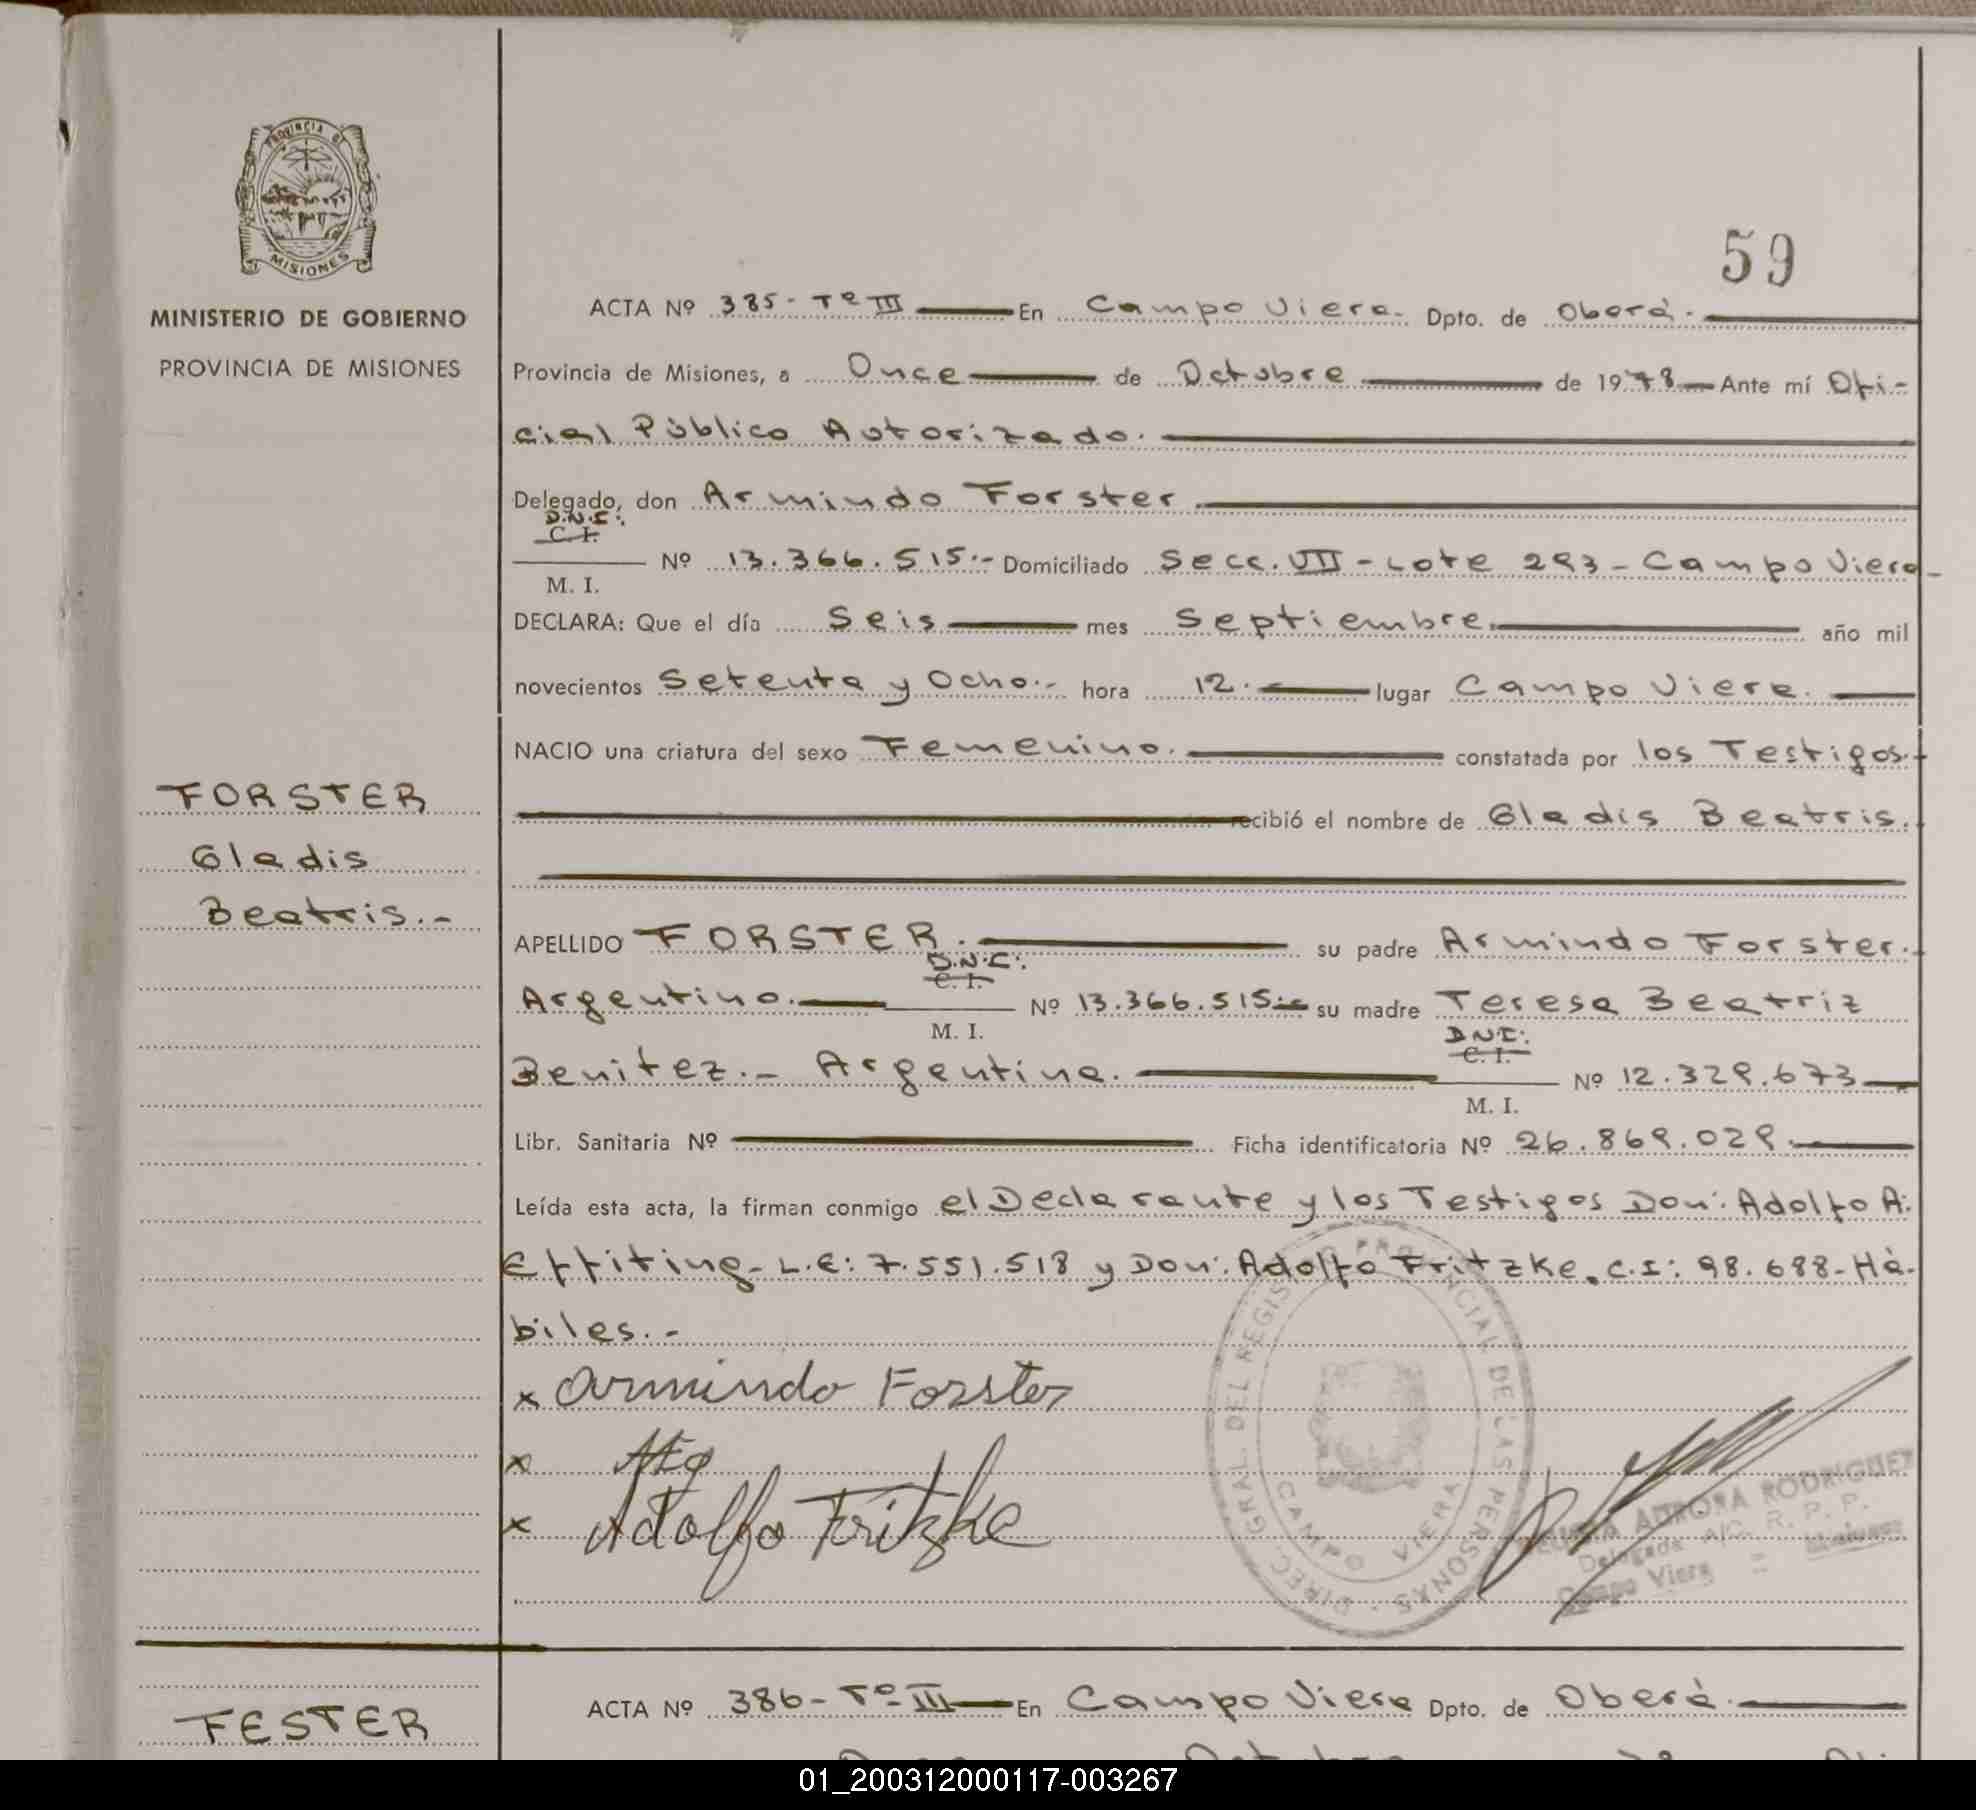 PROVINCIA DE
MISIONES
MINISTERIO DE GOBIERNO
PROVINCIA DE MISIONES
59
ACTA Nº 385- Tº III En Campo Viera- Dpto. de Oberá.
Provincia de Misiones, a Once de Octubre de 1978 Ante mí Ofi-
cial Público Autorizado.
Delegado, don Armindo Forster
D.N.I:
C. I.
Nº 13.366.515.- Domiciliado Secc. VII - Lote 293 - Campo Viera-
M. I.
DECLARA: Que el día Seis mes Septiembre. año mil
novecientos Setenta y Ocho.- hora 12.- lugar Campo Viera.
NACIO una criatura del sexo Femenino. constatada por los Testigos.
FORSTER
recibió el nombre de Gladis Beatris.
Gladis
Beatris.-
APELLIDO FORSTER. su padre Armindo Forster.
D.N.I:
C. I.
Argentino. Nº 13.366.515.- su madre Teresa Beatriz
M. I.
D.N.I:
C. I.
Benitez.- Argentina. Nº 12.329.673
M. I.
Libr. Sanitaria Nº Ficha identificatoria Nº 26.869.029.
Leída esta acta, la firman conmigo el Declarante y los Testigos Don: Adolfo A.
Effiting- L.E: 7.551.518 y Don: Adolfo Fritzke. C.I: 98.688- Há-
biles.-
x Armindo Forster
x
x Adolfo Fritzke
DIREC. GRAL. DEL REGISTRO PROVINCIAL DE LAS PERSONAS -
CAMPO VIERA
AURORA RODRIGUEZ
Delegada A/C. R. P. P.
Campo Viera = Misiones
FESTER
ACTA Nº 386- Tº III En Campo Viera Dpto. de Oberá.
01_200312000117-003267